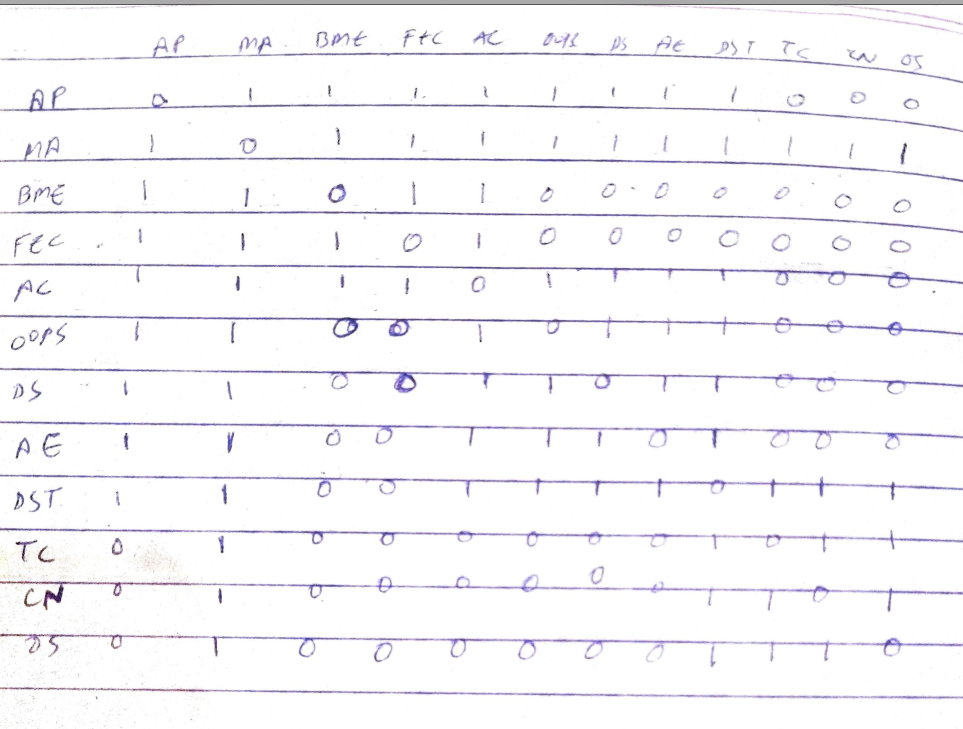 AP MA BME FEC AC OOPS DS AE DST TC CN OS
AP 0 1 1 1 1 1 1 1 1 0 0 0
MA 1 0 1 1 1 1 1 1 1 1 1 1
BME 1 1 0 1 1 0 0 0 0 0 0 0
FEC 1 1 1 0 1 0 0 0 0 0 0 0
AC 1 1 1 1 0 1 1 1 1 0 0 0
OOPS 1 1 0 0 1 0 1 1 1 0 0 0
DS 1 1 0 0 1 1 0 1 1 0 0 0
AE 1 1 0 0 1 1 1 0 1 0 0 0
DST 1 1 0 0 1 1 1 1 0 1 1 1
TC 0 1 0 0 0 0 0 0 1 0 1 1
CN 0 1 0 0 0 0 0 0 1 1 0 1
OS 0 1 0 0 0 0 0 0 1 1 1 0